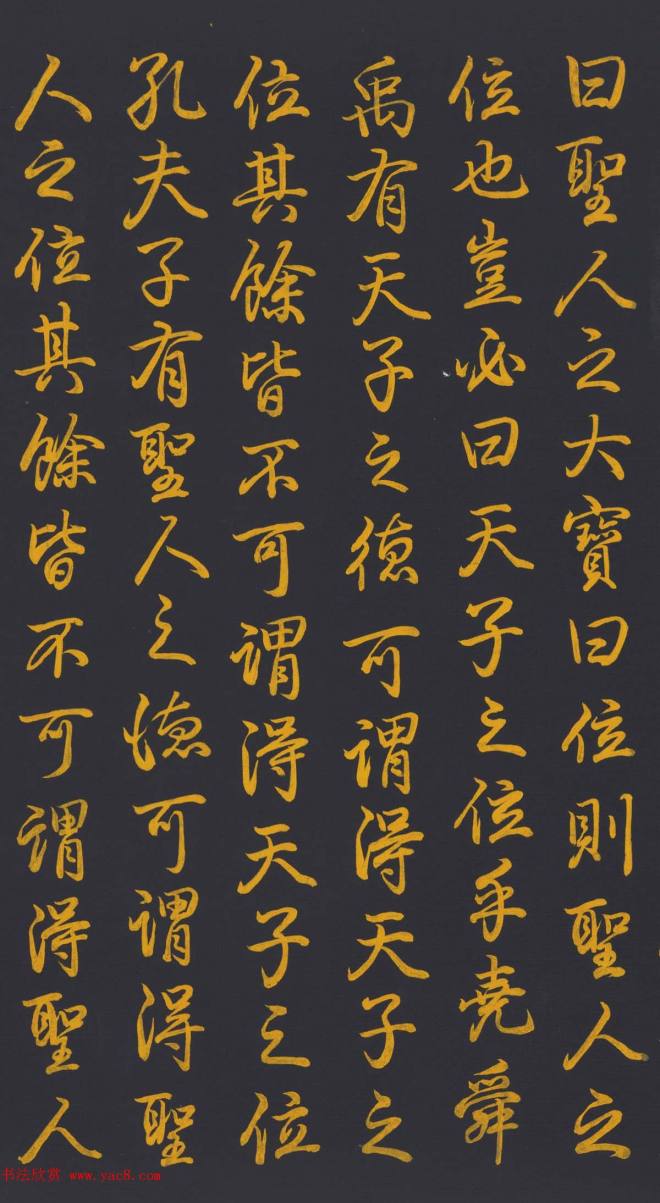 曰聖人之大寶曰位則聖人之
位也豈必曰天子之位乎堯舜
禹有天子之德可謂得天子之
位其餘皆不可謂得天子之位
孔夫子有聖人之德可謂得聖
人之位其餘皆不可謂得聖人
书法欣赏 www.yac8.com